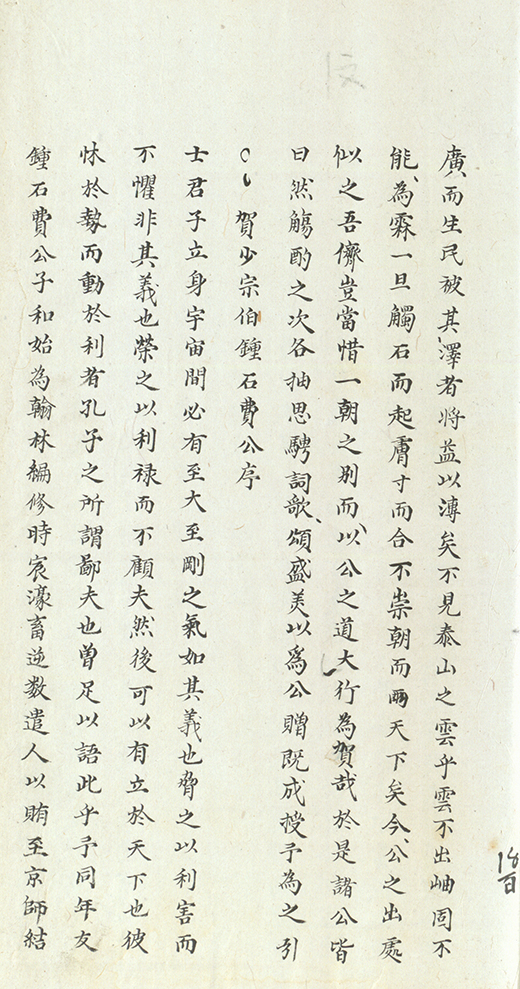 廣而生民被其澤者將益以溥矣不見泰山之雲乎雲不出岫固不
能為霖一旦觸石而起膚寸而合不崇朝而雨天下矣今公之出處
似之吾儕豈當惜一朝之别而以公之道大行為賀哉於是諸公皆
曰然觴酌之次各抽思騁詞歌頌盛美以爲公贈既成授予為之引
賀少宗伯鍾石費公序
士君子立身宇宙間必有至大至剛之氣如其義也脅之以利害而
不懼非其義也榮之以利禄而不顧夫然後可以有立於天下也彼
怵於勢而動於利者孔子之所謂鄙夫也曽足以語此乎予同年友
鍾石費公子和始為翰林編修時宸濠畜逆数遣人以賄至京師結
18